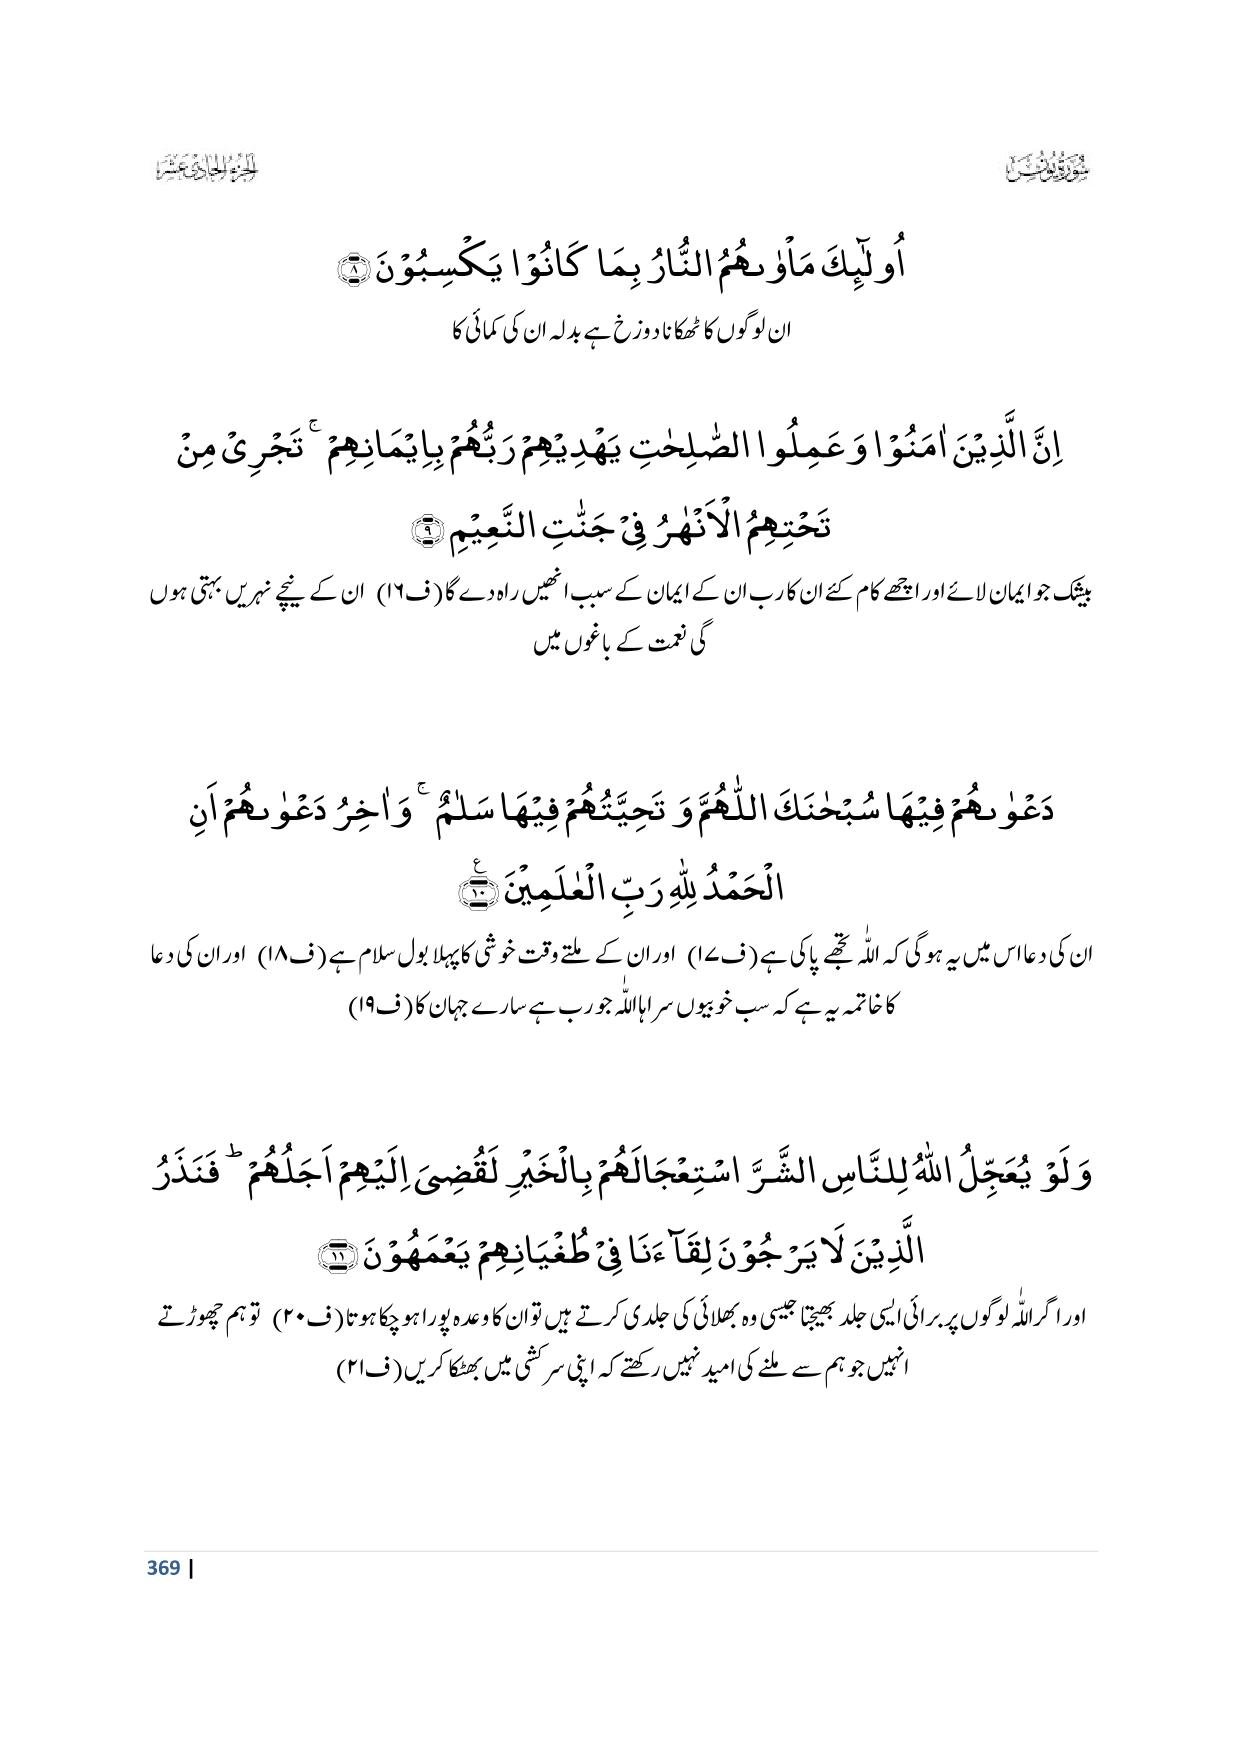 سورة يونس
الجزء الحادي عشر
اُولٰٓئِكَ مَاْوٰىهُمُ النُّارُ بِمَا كَانُوْا يَكْسِبُوْنَ ﴿۸﴾
ان لوگوں کا ٹھکانا دوزخ ہے بدلہ ان کی کمائی کا
اِنَّ الَّذِيْنَ اٰمَنُوْا وَ عَمِلُوا الصّٰلِحٰتِ يَهْدِيْهِمْ رَبُّهُمْ بِاِيْمَانِهِمْ ۚ تَجْرِیْ مِنْ
تَحْتِهِمُ الْاَنْهٰرُ فِیْ جَنّٰتِ النَّعِيْمِ ﴿۹﴾
بیشک جو ایمان لائے اور اچھے کام کئے ان کا رب ان کے ایمان کے سبب انھیں راہ دے گا (ف۱۶) ان کے نیچے نہریں بہتی ہوں
گی نعمت کے باغوں میں
دَعْوٰىهُمْ فِيْهَا سُبْحٰنَكَ اللّٰهُمَّ وَ تَحِيَّتُهُمْ فِيْهَا سَلٰمٌ ۚ وَ اٰخِرُ دَعْوٰىهُمْ اَنِ
الْحَمْدُ لِلّٰهِ رَبِّ الْعٰلَمِيْنَ ﴿۱۰﴾ ع
ان کی دعا اس میں یہ ہوگی کہ اللہ تجھے پاکی ہے (ف۱۷) اور ان کے ملتے وقت خوشی کا پہلا بول سلام ہے (ف۱۸) اور ان کی دعا
کا خاتمہ یہ ہے کہ سب خوبیوں سراہا اللہ جو رب ہے سارے جہان کا (ف۱۹)
وَ لَوْ يُعَجِّلُ اللّٰهُ لِلنَّاسِ الشَّرَّ اسْتِعْجَالَهُمْ بِالْخَيْرِ لَقُضِیَ اِلَيْهِمْ اَجَلُهُمْ ؕ فَنَذَرُ
الَّذِيْنَ لَا يَرْجُوْنَ لِقَآءَنَا فِیْ طُغْيَانِهِمْ يَعْمَهُوْنَ ﴿۱۱﴾
اور اگر اللہ لوگوں پر برائی ایسی جلد بھیجتا جیسی وہ بھلائی کی جلدی کرتے ہیں تو ان کا وعدہ پورا ہو چکا ہوتا (ف۲۰) تو ہم چھوڑتے
انہیں جو ہم سے ملنے کی امید نہیں رکھتے کہ اپنی سرکشی میں بھٹکا کریں (ف۲۱)
369 |